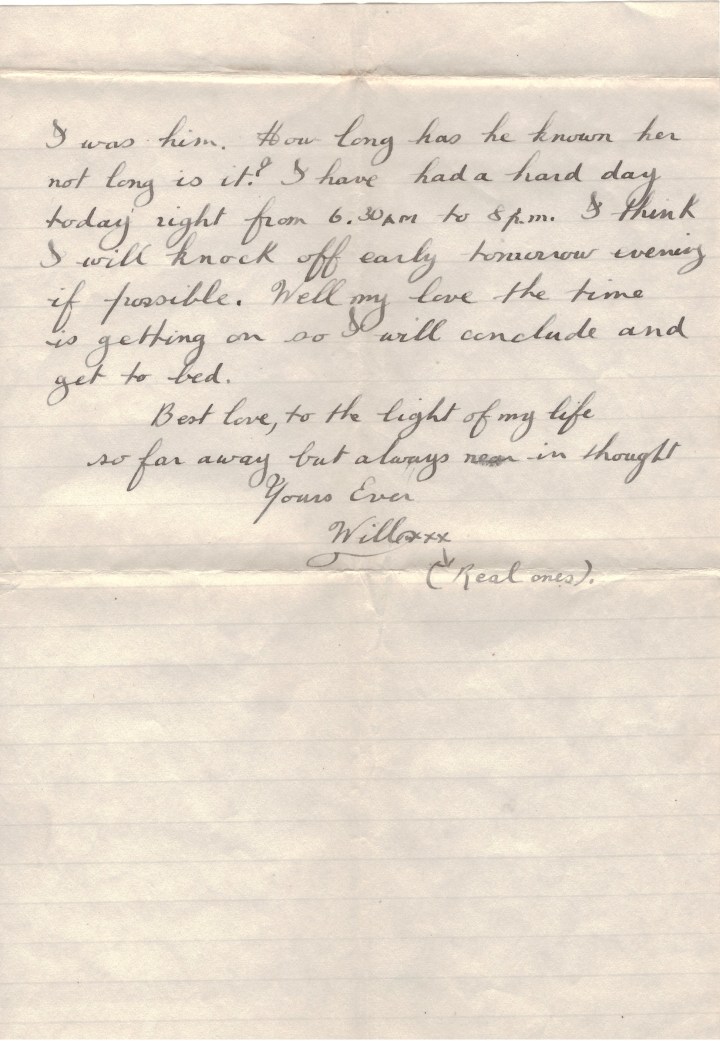 I was him. How long has he known her
not long is it? I have had a hard day
today right from 6.30AM to 8p.m. I think
I will knock off early tomorrow evening
if possible. Well my love the time
is getting on so I will conclude and
get to bed.
Best love, to the light of my life
so far away but always near in thought
Yours Ever
Will xxx
(Real ones).